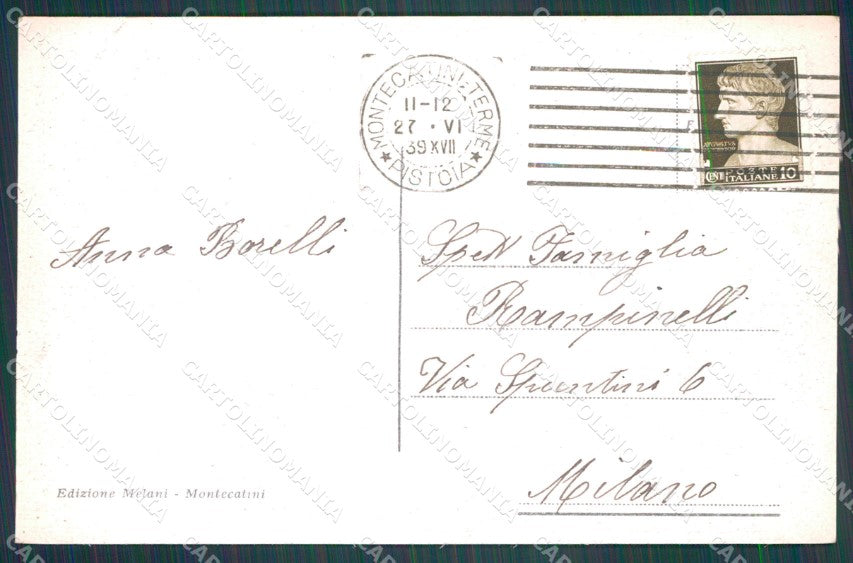 MONTECATINI-TERME
11-12
27 · VI
39 XVII
★ PISTOIA ★
POSTE
CENT ITALIANE 10
Anna Borelli
Spett Famiglia
Rampinelli
Via Spontini 6
Milano
Edizione Melani - Montecatini
CARTOLINOMANIA